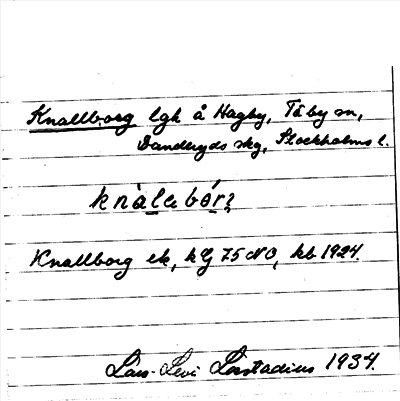 Knallborg lgh å Hagby, Täby sn,
Danderyds skg, Stockholms l.
knàlabór₂
Knallborg ek, kG 75 NO, kb 1924.
Lars-Levi Læstadius 1934.